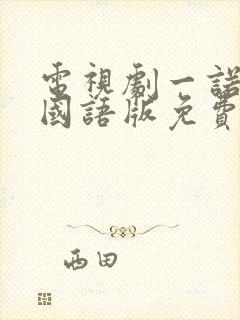 電視劇一諾
國語版免費
西田